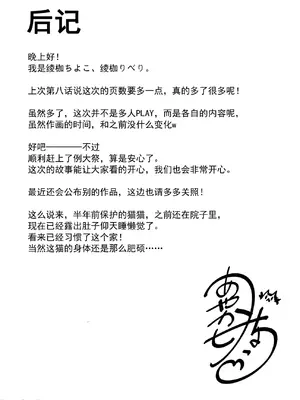 后记
晚上好！
我是绫枷ちよこ、绫枷りべり。
上次第八话说这次的页数要多一点，真的多了很多呢！
虽然多了，这次并不是多人PLAY，而是各自的内容呢，
虽然作画的时间，和之前没什么变化w
好吧————不过
顺利赶上了例大祭，算是安心了。
这次的故事能让大家看的开心，我们也会非常开心。
最近还会公布别的作品，这边也请多多关照！
这么说来，半年前保护的猫猫，之前还在院子里，
现在已经露出肚子仰天睡懒觉了。
看来已经习惯了这个家！
当然这猫的身体还是那么肥硕……